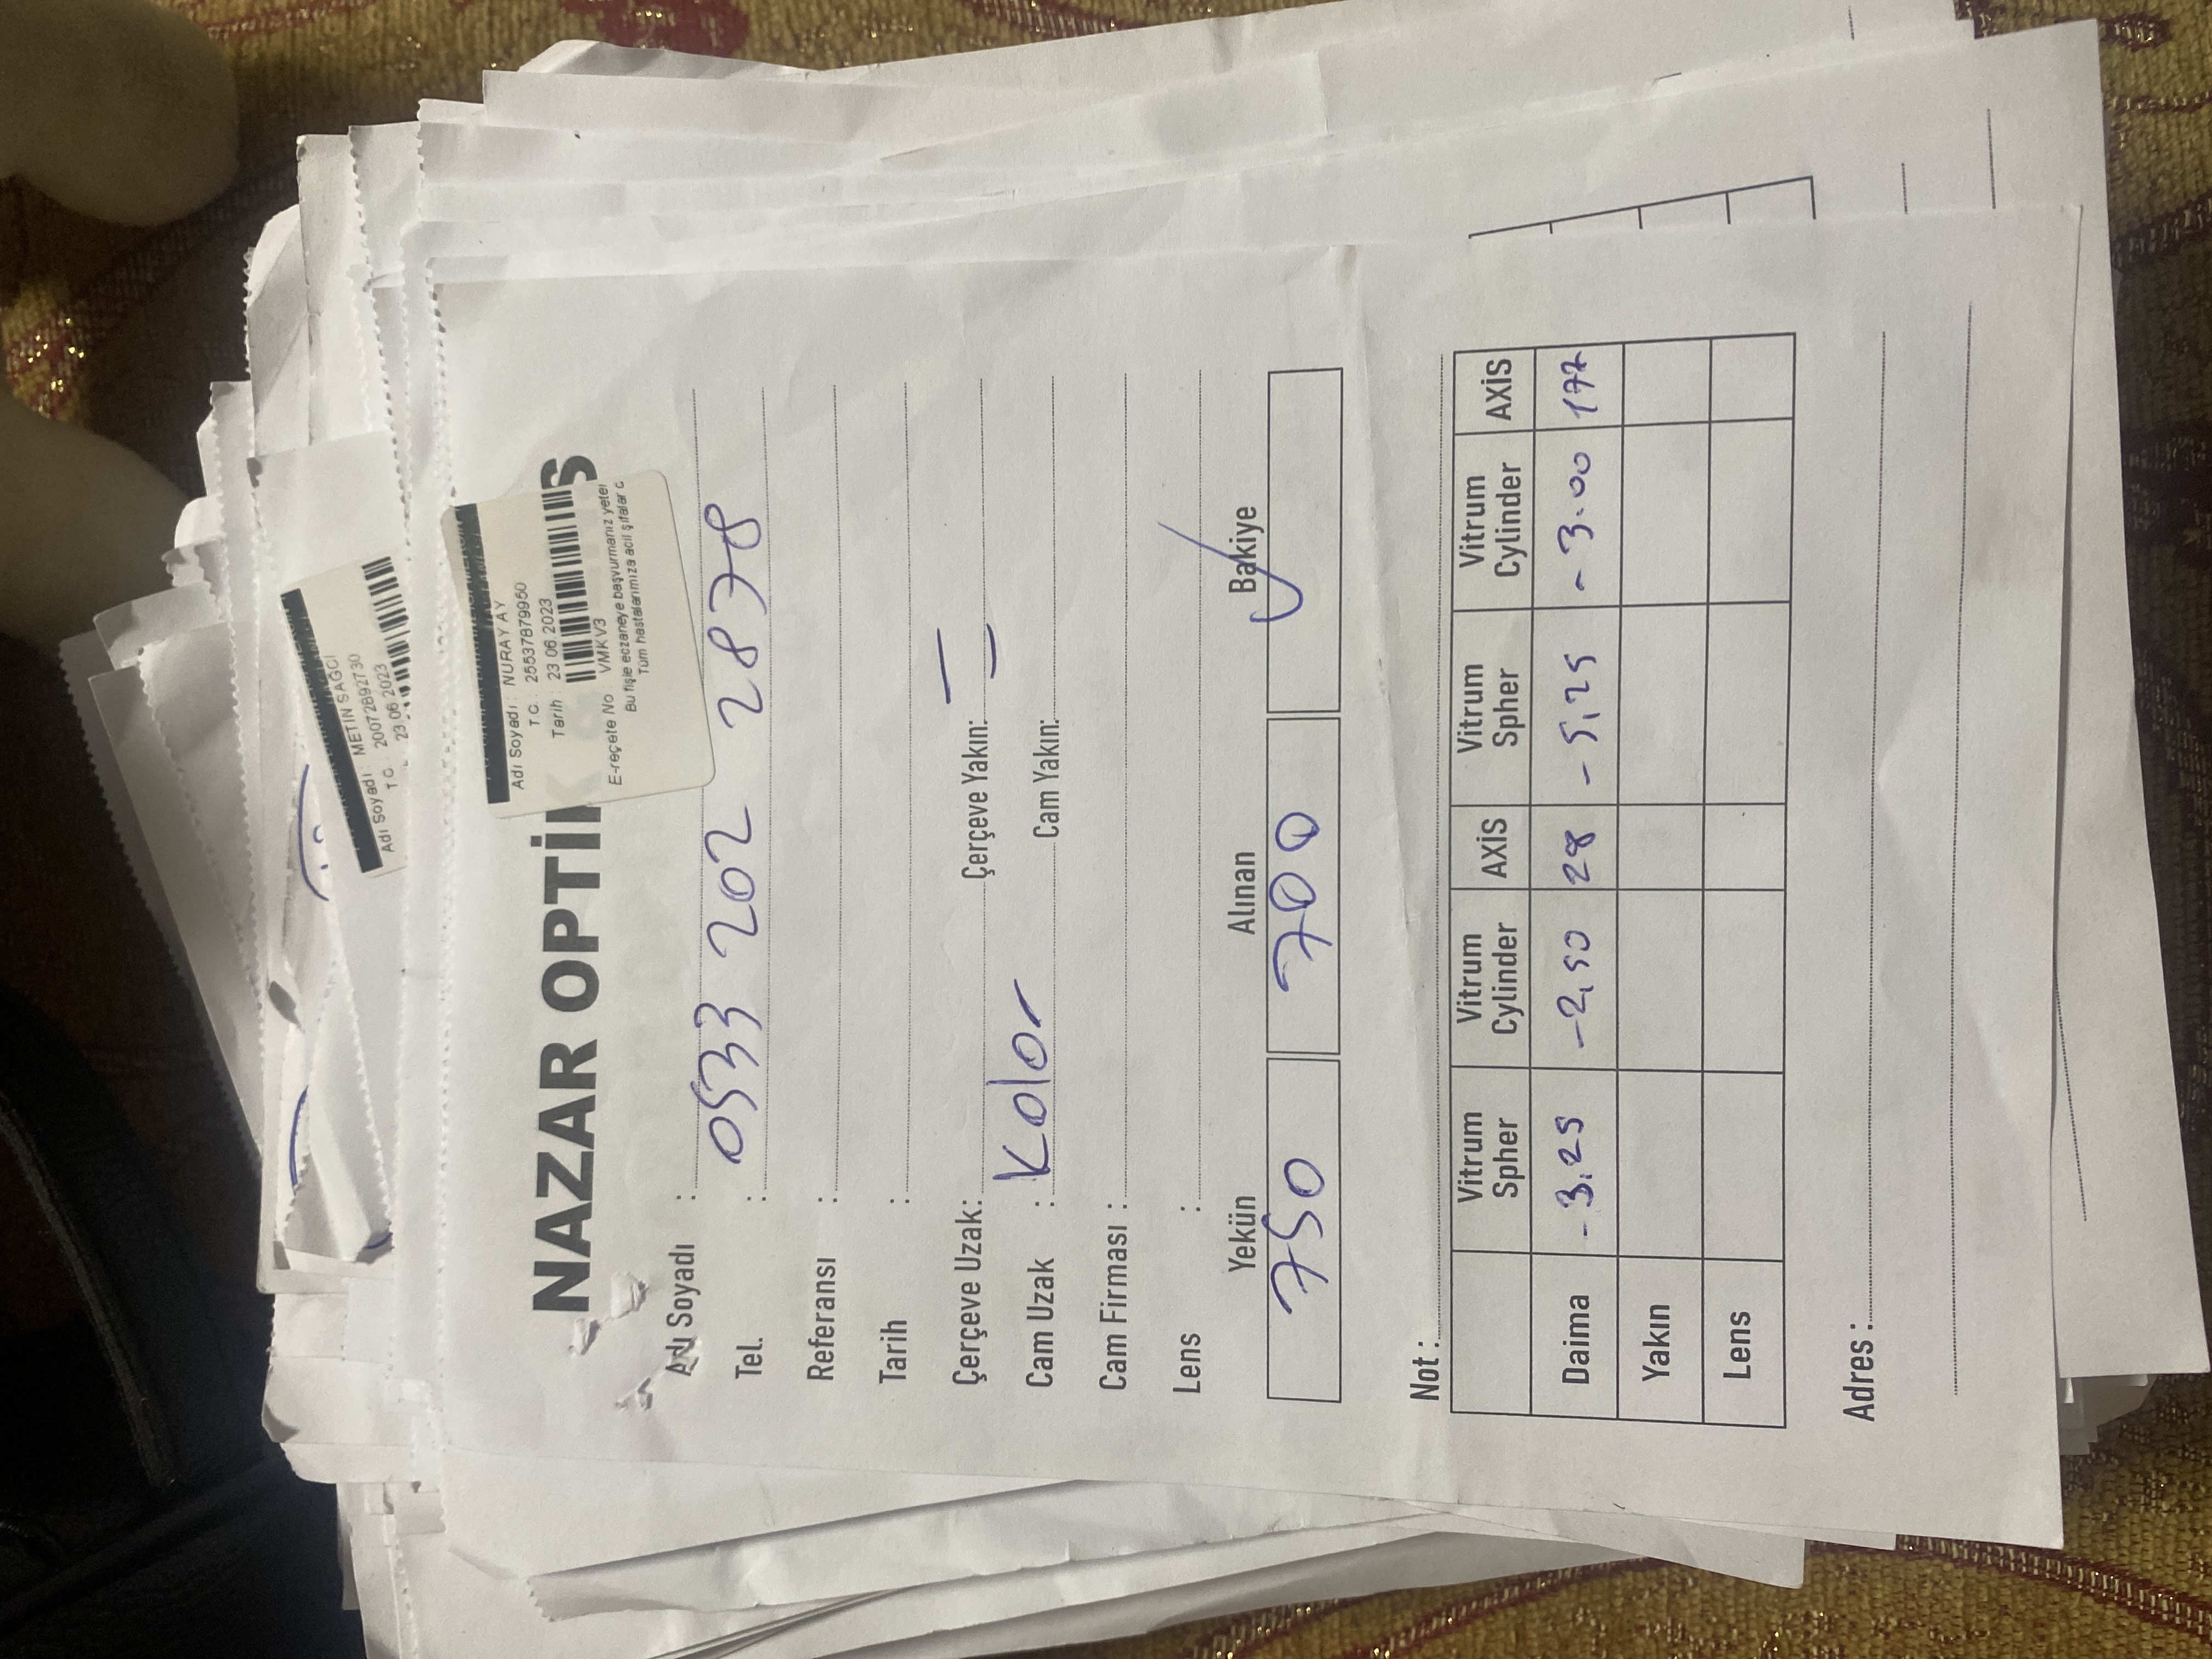 Adı Soyadı : METİN SAĞCI
T.C. 20072892730
23.06.2023
NAZAR OPTİK S
Adı Soyadı : NURAY AY
T.C. : 25537879950
Tarih : 23.06.2023
E-reçete No : VMKV3
Bu fişle eczaneye başvurmanız yeter
Tüm hastalarımıza acil şifalar
Adı Soyadı :
Tel. : 0533 202 2878
Referansı :
Tarih :
Çerçeve Uzak: Çerçeve Yakın:
Cam Uzak : Kolor Cam Yakın:
Cam Firması :
Lens :
Yekün Alınan Bakiye
750 700 ✓
Not :
Vitrum Spher Vitrum Cylinder AXİS Vitrum Spher Vitrum Cylinder AXİS
Daima -3,25 -2,50 28 -5,25 -3.00 177
Yakın
Lens
Adres :